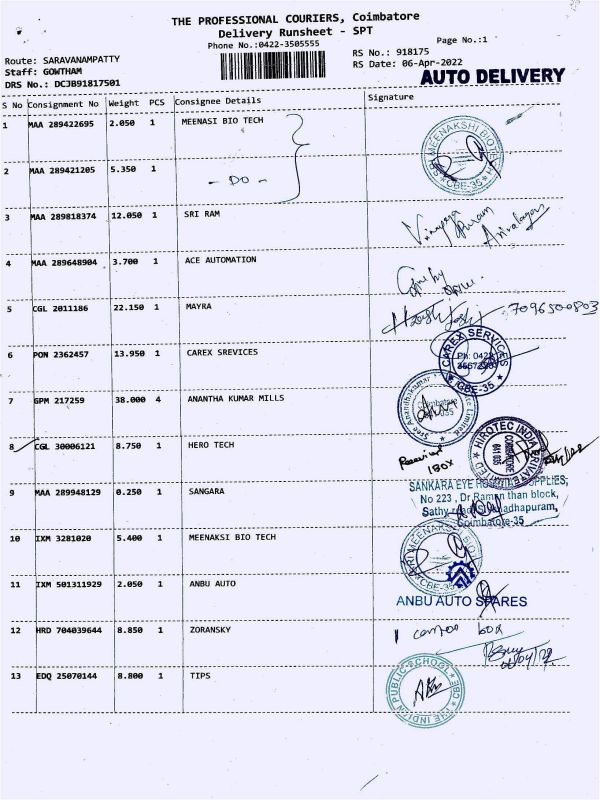 THE PROFESSIONAL COURIERS, Coimbatore
Delivery Runsheet - SPT
Phone No.:0422-3505555
Page No.:1
Route: SARAVANAMPATTY
Staff: GOWTHAM
DRS No.: DCJB91817501
RS No.: 918175
RS Date: 06-Apr-2022
AUTO DELIVERY
S No Consignment No Weight PCS Consignee Details Signature
1 MAA 289422695 2.050 1 MEENASI BIO TECH
SRI MEENAKSHI BIOTECH CBE-35
2 MAA 289421205 5.350 1 - DO -
3 MAA 289818374 12.050 1 SRI RAM
Vinayaga Puram
4 MAA 289648904 3.700 1 ACE AUTOMATION
5 CGL 2011186 22.150 1 MAYRA
7096500803
6 PON 2362457 13.950 1 CAREX SREVICES
CAREX SERVICES Ph: 0422 CBE-35
7 GPM 217259 38.000 4 ANANTHA KUMAR MILLS
Sree Anandhakumar Limited Coimbatore
8 CGL 30006121 8.750 1 HERO TECH
HIROTEC INDIA PRIVATE LIMITED COIMBATORE 641 035
Received
1 BOX
9 MAA 289948129 0.250 1 SANGARA
SANKARA EYE HOSPITAL SUPPLIES,
No 223, Dr Raman than block,
Sathy road, Sivanandhapuram,
Coimbatore-35
10 IXM 3281020 5.400 1 MEENAKSI BIO TECH
SRI MEENAKSHI BIOTECH CBE-35
11 IXM 501311929 2.050 1 ANBU AUTO
ANBU AUTO SPARES
12 HRD 704039644 8.850 1 ZORANSKY
1 box
13 EDQ 25070144 8.800 1 TIPS
THE INDIAN PUBLIC SCHOOL CBE